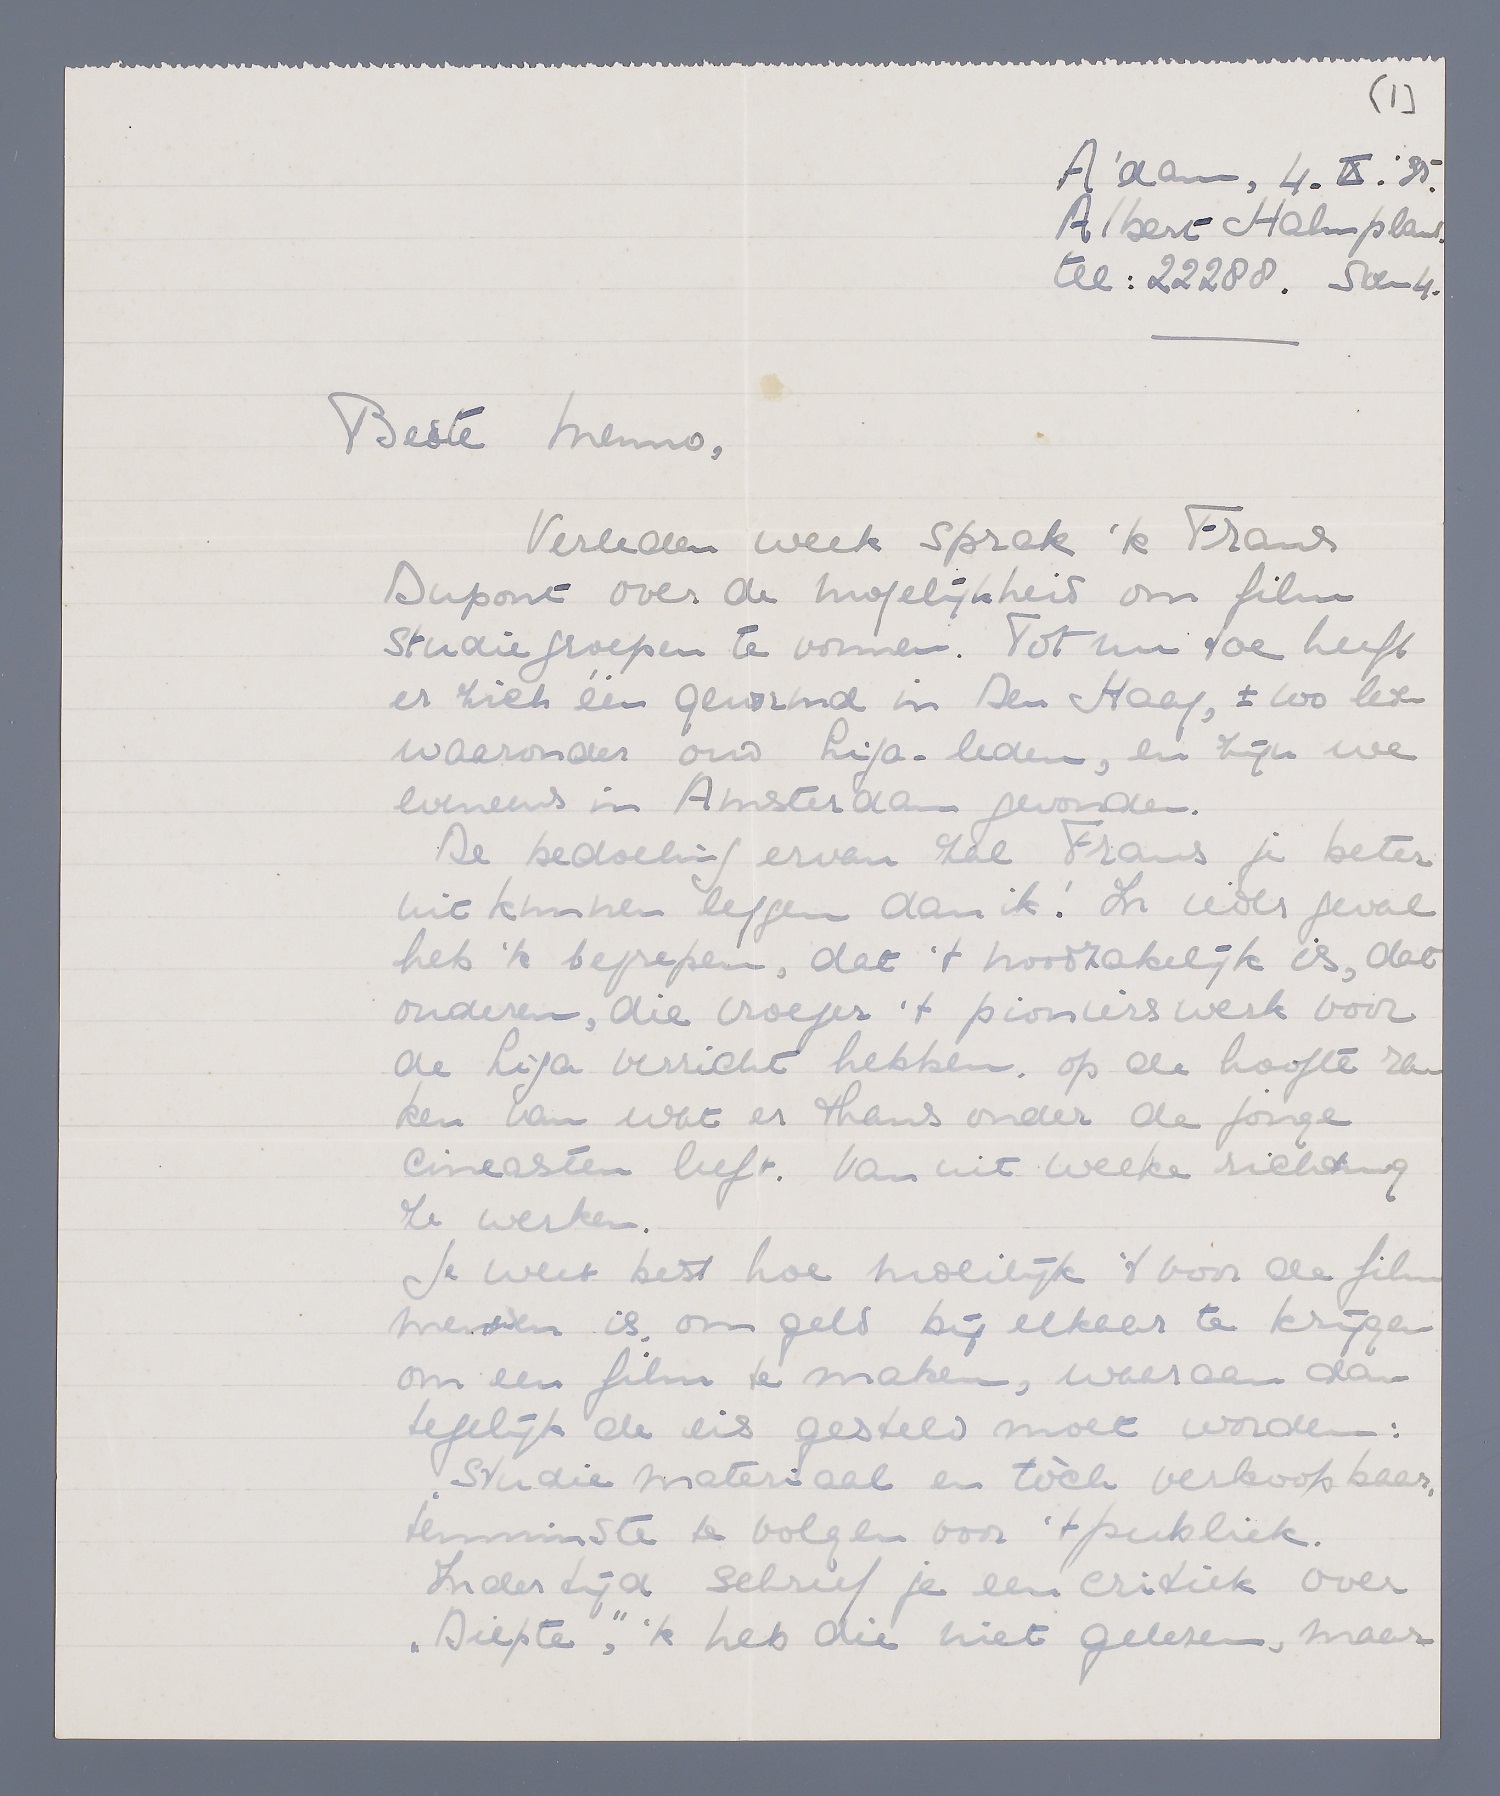 (1)
A'dam, 4. IX. '35.
Albert Hahnplants.
tel: 22288.
Beste Menno,
Verleden week sprak 'k Frans
Dupont over de mogelijkheid om film
studiegroepen te vormen. Tot nu toe heeft
er zich één gevormd in Den Haag, ± 100 leden
waaronder oud Liga-leden, en zijn we
eveneens in Amsterdam gevonden.
De bedoeling ervan zal Frans je beter
uit kunnen leggen dan ik! In ieder geval
heb 'k begrepen, dat 't noodzakelijk is, dat
anderen, die vroeger 't pionierswerk voor
de Liga verricht hebben. op de hoogte ra
ken van wat er thans onder de jonge
cineasten leeft. Van uit welke richting
ze werken.
Je weet best hoe moeilijk 't voor de film
mensen is. om geld bij elkaar te krijgen
om een film te maken, waaraan dan
tegelijk de eis gesteld moet worden:
„Studie materiaal en tòch verkoopbaar,
tenminste te volgen voor 't publiek.
Indertijd schreef je een critiek over
„Diepte," 'k heb die niet gelezen, maar